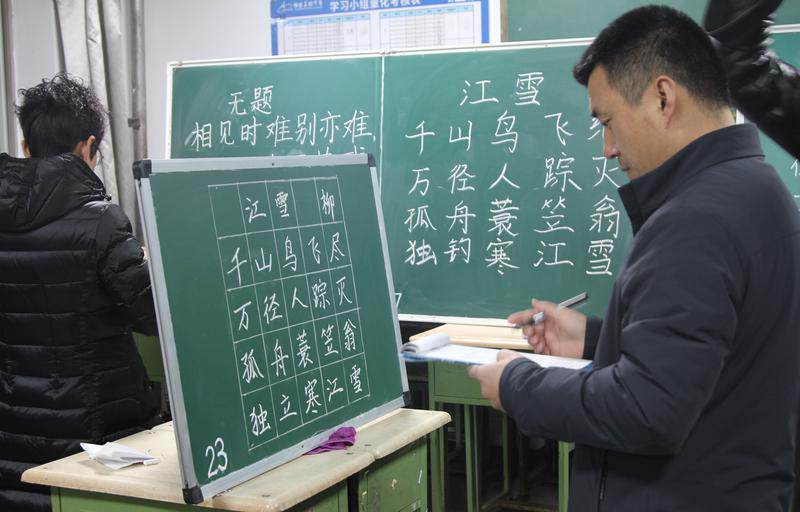 学习小组量化考核表
无题
相见时难别亦难,
江雪
千山鸟飞
万径人踪灭
孤舟蓑笠翁
独钓寒江雪
江雪 柳
千山鸟飞尽
万径人踪灭
孤舟蓑笠翁
独立寒江雪
23